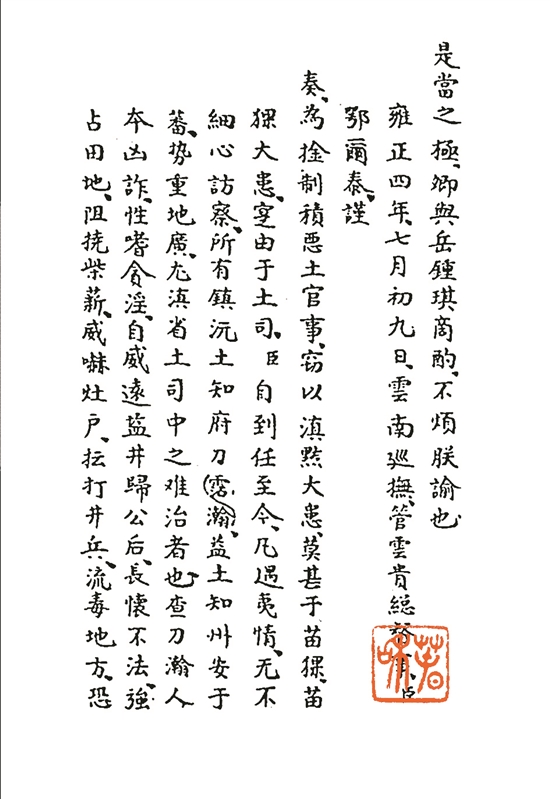 是當之極、卿與岳鍾琪商酌、不煩朕諭也、
雍正四年、七月初九日、雲南巡撫、管雲貴総督事、臣
鄂爾泰、謹
奏、為捡制積悪土官事、窃以滇黔大患、莫甚于苗猓、苗
猓大患、寔由于土司、臣自到任至今、凡遇夷情、无不
細心訪察、所有鎮沅土知府刀霑瀚、益土知州安于
蕃、势重地廣、尤滇省土司中之难治者也、查刀瀚人
夲凶詐、性嗜貪淫、自威遠盐井歸公后、長懷不法、強
占田地、阻挠柴薪、威嚇灶户、抎打井兵、流毒地方、恐